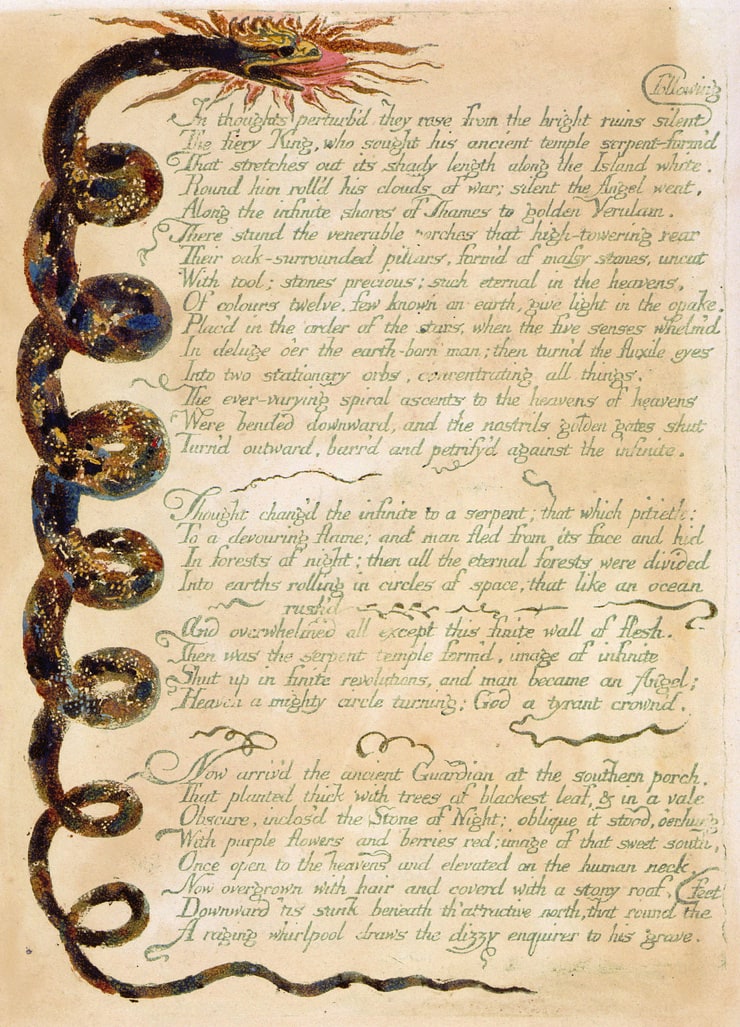 Following
In thoughts perturb'd they rose from the bright ruins silent
The fiery King, who sought his ancient temple serpent-form'd
That stretches out its shady length along the Island white.
Round him roll'd his clouds of war; silent the Angel went,
Along the infinite shores of Thames to golden Verulam.
There stand the venerable porches that high-towering rear
Their oak-surrounded pillars, form'd of massy stones, uncut
With tool; stones precious; such eternal in the heavens,
Of colours twelve, few known on earth, give light in the opake,
Plac'd in the order of the stars, when the five senses whelm'd
In deluge o'er the earth-born man; then turn'd the fluxile eyes
Into two stationary orbs, concentrating all things.
The ever-varying spiral ascents to the heavens of heavens
Were bended downward, and the nostrils golden gates shut
Turn'd outward, barr'd and petrify'd against the infinite.
Thought chang'd the infinite to a serpent; that which pitieth:
To a devouring flame; and man fled from its face and hid
In forests of night; then all the eternal forests were divided
Into earths rolling in circles of space, that like an ocean
rush'd
And overwhelmed all except this finite wall of flesh.
Then was the serpent temple form'd, image of infinite
Shut up in finite revolutions, and man became an Angel;
Heaven a mighty circle turning; God a tyrant crown'd.
Now arriv'd the ancient Guardian at the southern porch,
That planted thick with trees of blackest leaf, & in a vale
Obscure, inclos'd the Stone of Night; oblique it stood, o'erhung
With purple flowers and berries red; image of that sweet south,
Once open to the heavens and elevated on the human neck,
Now overgrown with hair and cover'd with a stony roof,
Downward 'tis sunk beneath th' attractive north, that round the
feet
A raging whirlpool draws the dizzy enquirer to his grave.